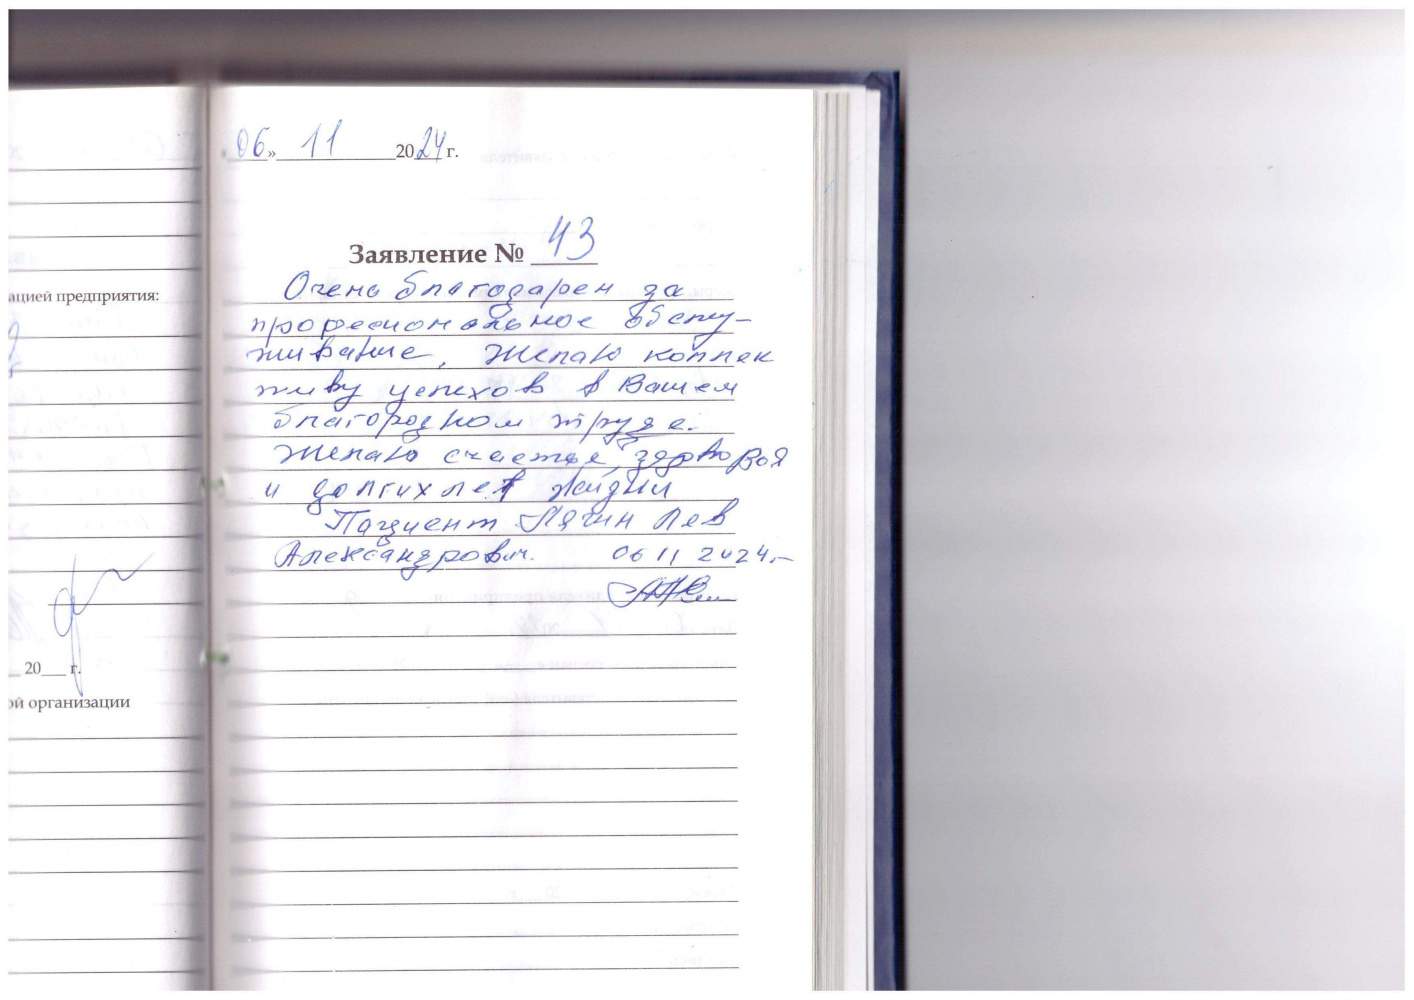 06» 11 2024 г.
Заявление № 43
Очень благодарен за
професиональное обслу-
живание, Желаю коллек
тиву успехов в Вашем
благородном труде.
Желаю счастья, здоровья
и долгих лет жизни
Пациент Лягин Лев
Александрович. 06 11 2024.-
ацией предприятия:
20___ г.
ой организации